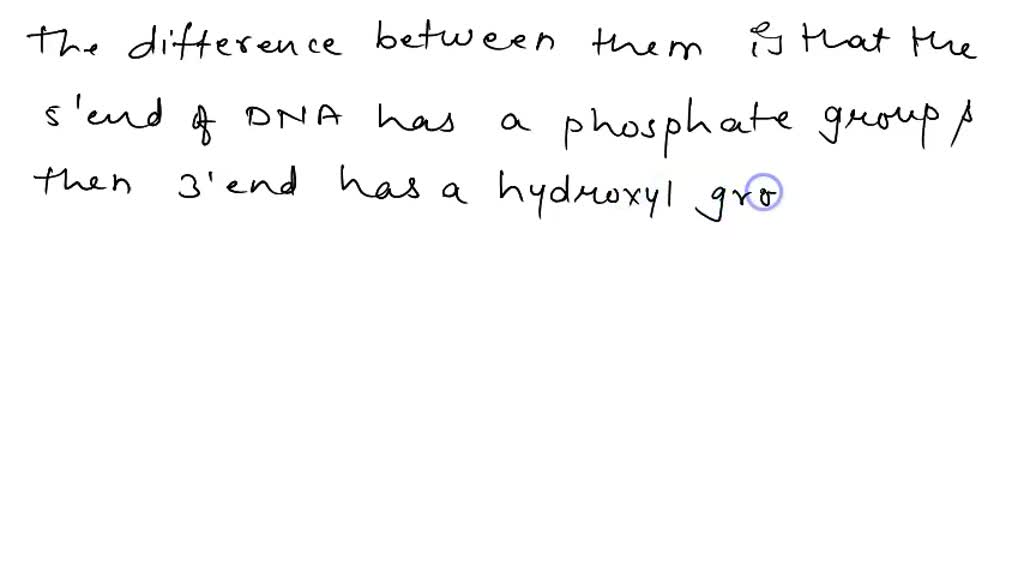 The difference between them is that the
5'end of DNA has a phosphate group &
then 3'end has a hydroxyl gro